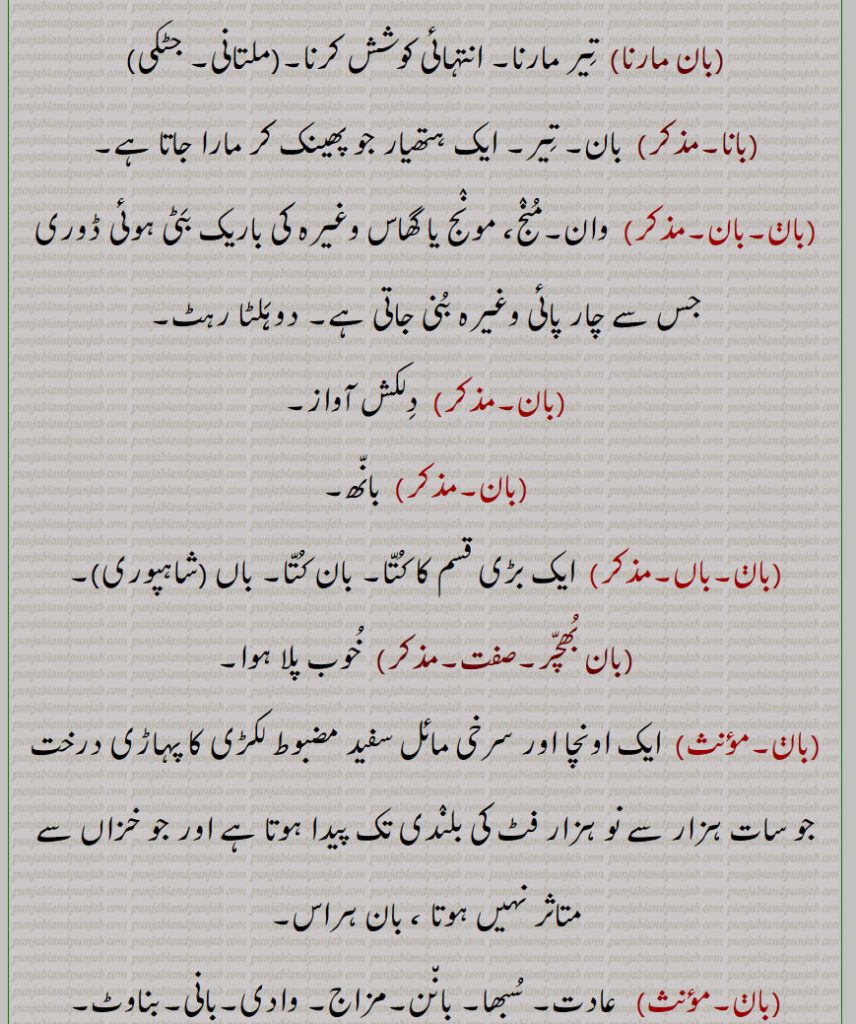 (بان مارنا) تِیر مارنا۔ انتہائی کوشش کرنا۔(ملتانی۔ جٹکی)
(بانا۔مذکر) بان۔ تِیر۔ ایک ہتھیار جو پھینک کر مارا جاتا ہے۔
(باݨ۔بان۔مذکر) وان۔مُنْج، مونْج یا گھاس وغیرہ کی باریک بَٹی ہوئی ڈوری
جس سے چار پائی وغیرہ بُنی جاتی ہے۔ دوہَلٹا رہٹ۔
(بان۔مذکر) دِلکش آواز۔
(بان۔مذکر) بانّھ۔
(باݨ۔باں۔مذکر) ایک بڑی قسم کا کُتّا۔ بان کُتّا۔ باں (شاہپوری)۔
(بان بُھچّر۔صفت۔مذکر) خُوب پلا ہوا۔
(باݨ۔مؤنث) ایک اونچا اور سرخی مائل سفید مضبوط لکڑی کا پہاڑی درخت
جو سات ہزار سے نو ہزار فٹ کی بلنْدی تک پیدا ہوتا ہے اور جو خزاں سے
متاثر نہیں ہوتا ، بان ہراس۔
(باݨ۔مؤنث) عادت۔ سُبھا۔ بانّن۔مزاج۔ وادی۔بانی۔بناوٹ۔